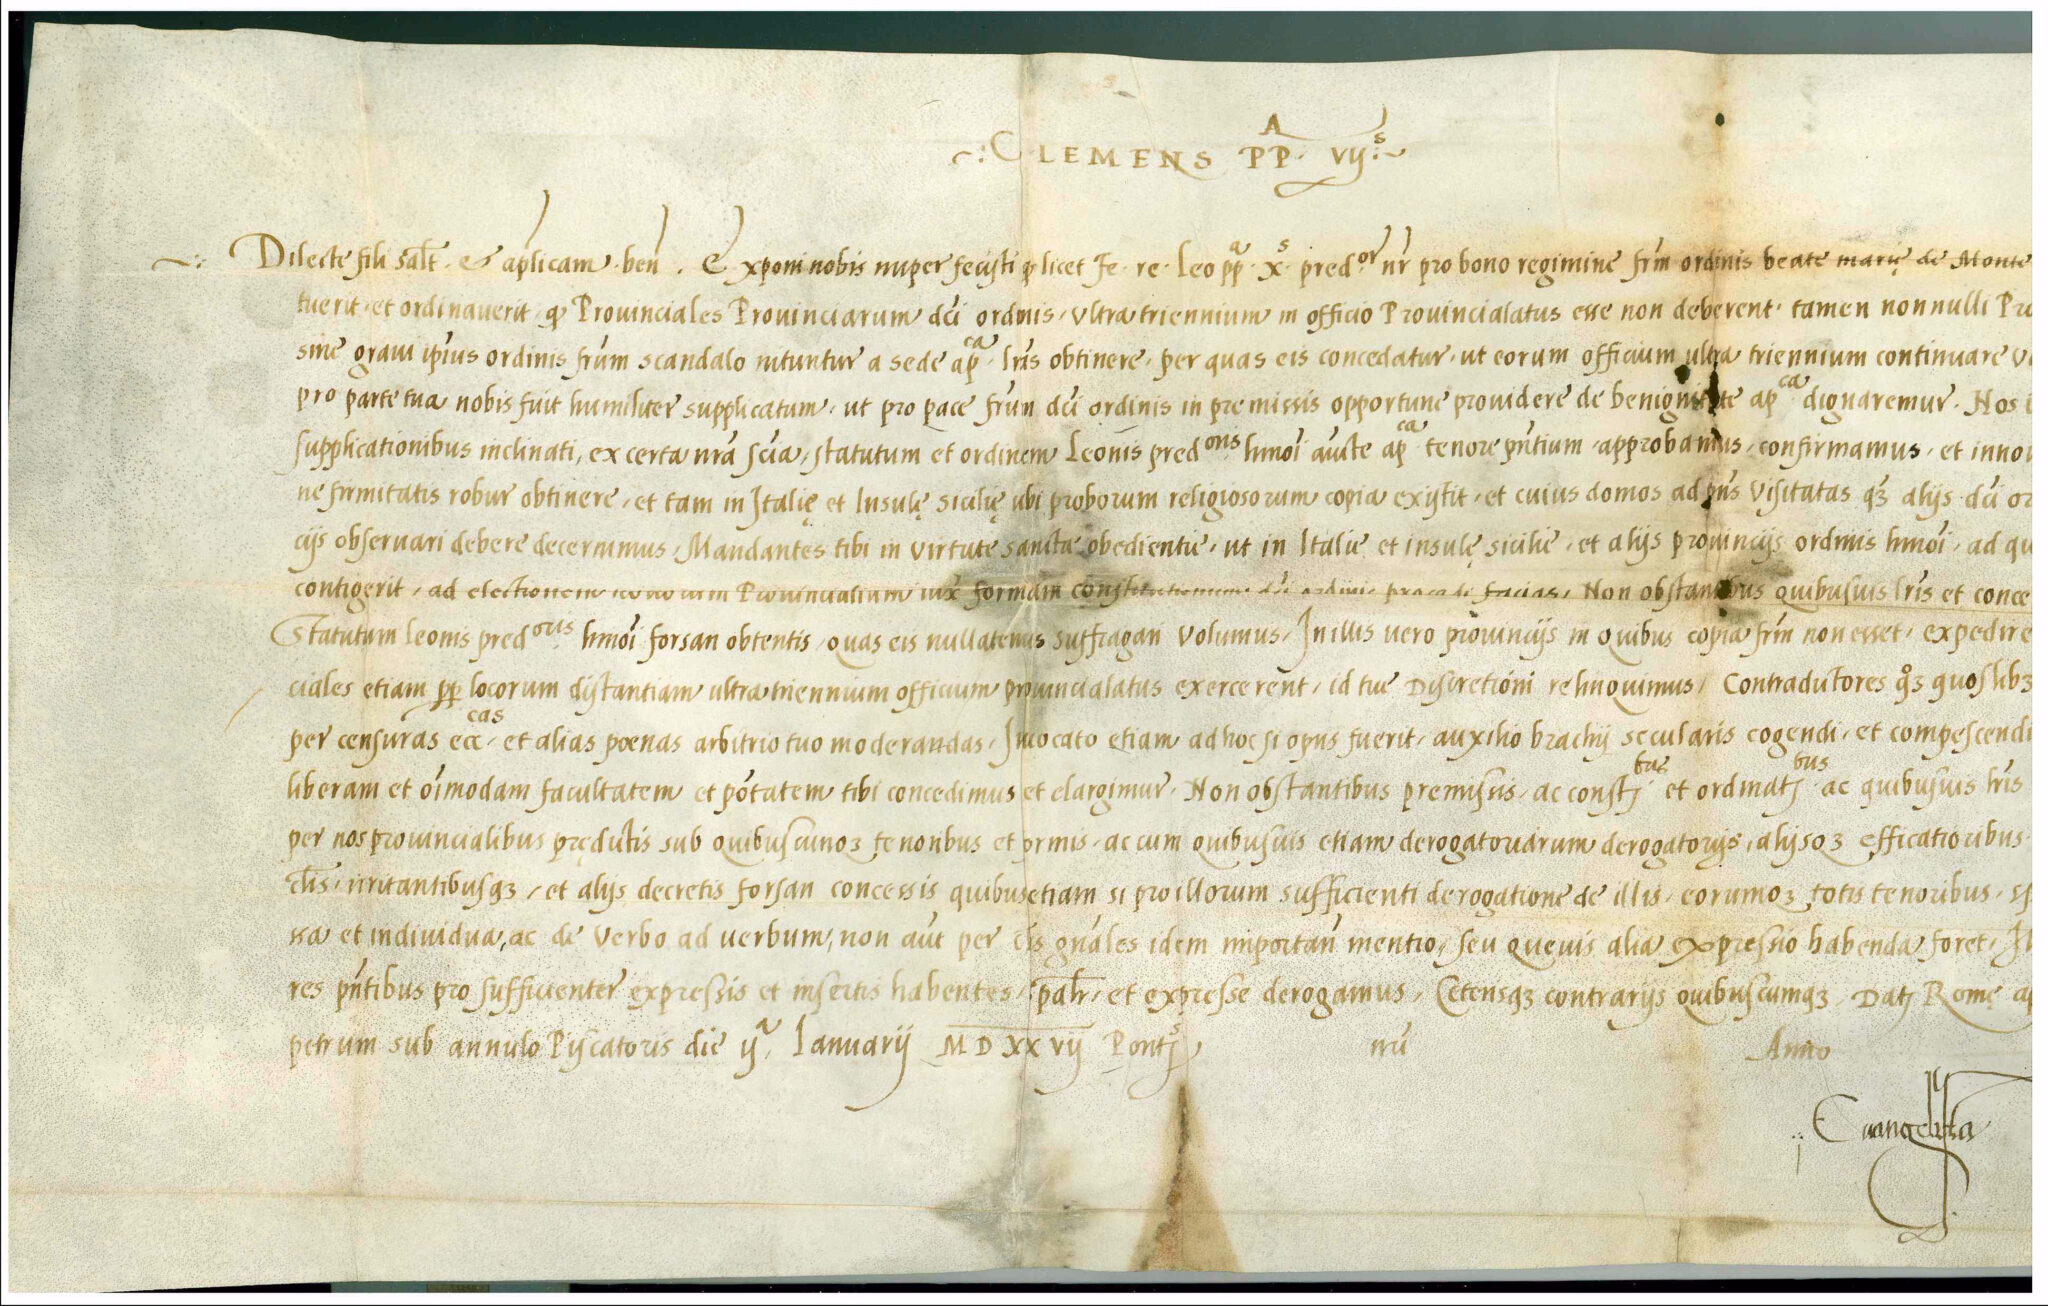 CLEMENS PP.A VIJ.s
Dilecte fili salt. et aplicam. ben. Exponi nobis nuper fecisti q licet fe. re. Leo pp.a X.s pred.or nr pro bono regimine frm ordinis beate marię de Monte
tuerit, et ordinaverit, q Provinciales Provinciarum dci ordinis, ultra triennium in officio Provincialatus esse non deberent, tamen nonnulli Pro
sine gravi ipius ordinis frum scandalo nituntur a sede ap.ca lris obtinere, per quas eis concedatur, ut eorum officium ultra triennium continuare
pro parte tua nobis fuit humiliter supplicatum, ut pro pace frum dci ordinis in premissis opportune providere de benignitate ap.ca dignaremur. Nos
supplicationibus inclinati, ex certa nra scia, statutum et ordinem Leonis pred.oris hmoi aucte ap.ca tenore pntium approbamus, confirmamus, et innov
ne firmitatis robur obtinere, et tam in Italię et Insulę Sicilię ubi proborum religiosorum copia existit, et cuius domos ad pns visitatas qz alijs dci or
cijs observari debere decernimus, Mandantes tibi in virtute sancte obedientie, ut in Italie et insulę sicilie, et alijs provincijs ordinis hmoi, ad qu
contigerit, ad electionem novorum Provincialium iux formam constitutionum dci ordinis procedi facias, Non obstantibus quibusvis lris et conce
Statutum Leonis pred.oris hmoi forsan obtentis, quas eis nullatenus suffragari volumus, In illis vero provincijs in quibus copia frm non esset, expedire
ciales etiam pp locorum distantiam ultra triennium officium provincialatus exercerent, id tue Discretioni relinquimus, Contradictores qz quoslibz
per censuras ecc.cas et alias poenas arbitrio tuo moderandas, Invocato etiam ad hoc si opus fuerit, auxilio brachij secularis cogendi, et compescendi
liberam et oimodam facultatem et potatem tibi concedimus et elargimur. Non obstantibus premissis, ac constj.bus et ordinatj.bus ac quibusvis lris
per nos provincialibus prędictis sub quibuscunqz tenoribus et formis, ac cum quibusvis etiam derogatoriarum derogatorijs, alijsqz efficatioribus
clis, irritantibusqz, et alijs decretis forsan concessis quibus etiam si pro illorum sufficienti derogatione de illis, eorumqz totis tenoribus, sp
ca et individua, ac de verbo ad verbum, non aut per clis gnales idem importan mentio, seu quevis alia expressio habenda foret,
res pntibus pro sufficienter expressis et insertis habentes, spalr, et expresse derogamus, Ceterisqz contrarijs quibuscumqz. Datj Romę ap
petrum sub annulo Piscatoris die ij.a Ianuarij MDXXVij Pontj.s nri Anno
Evangelista